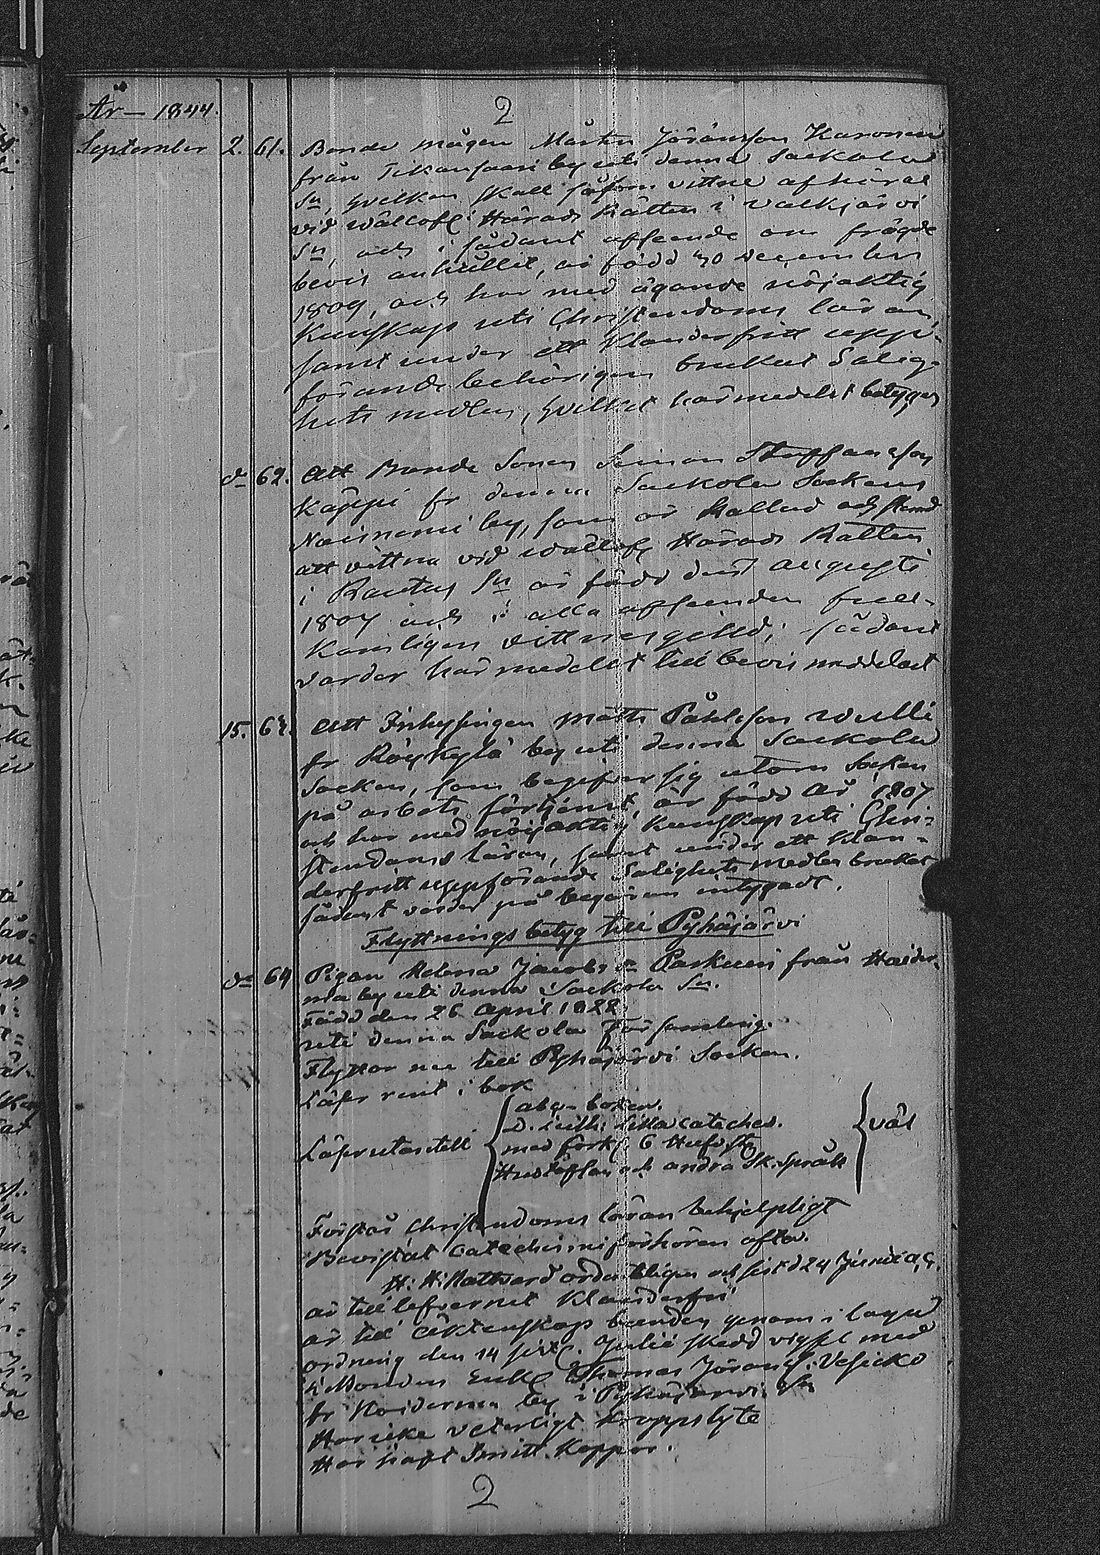 År – 1844.
2
September 2. 61. Bonde mågen Mårten Jöransson Karonen
från Tikansaari by uti denna Sackola
Sn, hvilken skall såsom vittne afhöras
vid Wällofl Härads Rätten i Walkjärvi
Sn, och i sådant afseende om frägde
bevis anhållit, är född 30 december
1809, och har med ägande nöjaktig
Kunskap uti Christendoms läran,
samt under ett klanderfritt uppf-
förande behörigen brukat Salig-
hets medlen, hvilket härmedelst betygas
do 62. Att Bonde Sonen Simon Staffansson
Käppi fr denna Sackola Sockens
Noisniemi by, som är kallad och stämd
att vittna vid Wällofl Härads Rätten
i Rautus Sn är född den augusti
1807 och i alla afseenden full-
komligen vittnesgild; sådant
varder härmedelst till bevis meddelat
15. 63. Att Inhysingen Matts Påhlsson Wulli
fr Röykylä by uti denna Sackola
Socken, som begifver sig utom Socken
på arbets förtjenst, är född År 1807
och har med nöijaktig kunskap uti Chri-
stendoms läran, samt under ett klan-
derfritt uppförande Salighets medlen brukat
sådant varder på begäran intygadt.
Flyttnings betyg till Pyhäjärvi
do 64 Pigan Helena Jacobs dr Paskuin från Haider-
ma by uti denna Sackola Sn.
Född den 26 April 1822
uti denna Sackola Församling.
Flyttar nu till Pyhäjärvi Socken.
Läser rent i bok
abc-boken.
D. Luth: Lilla cateches.
Läser utantill med förkl. 6 Hufvst. väl
Hustaflan och andra Sk. Språk
Förstår Christendoms läran behjelpligt
Bevistat Catechismiförhören ofta.
H: H: Nattvard ordentligen och sist d 24 Junii a. c.
är till lefvernet klanderfri
är till äktenskap bunden genom i laga
ordning den 14 sistl. Julii skedd vigsel med
Thomas Jörans. Vesicko
fr Noiderma by i Pyhäjärvi Sn
Har icke veterligt kroppslyte
Har haft Smitt koppor.
2